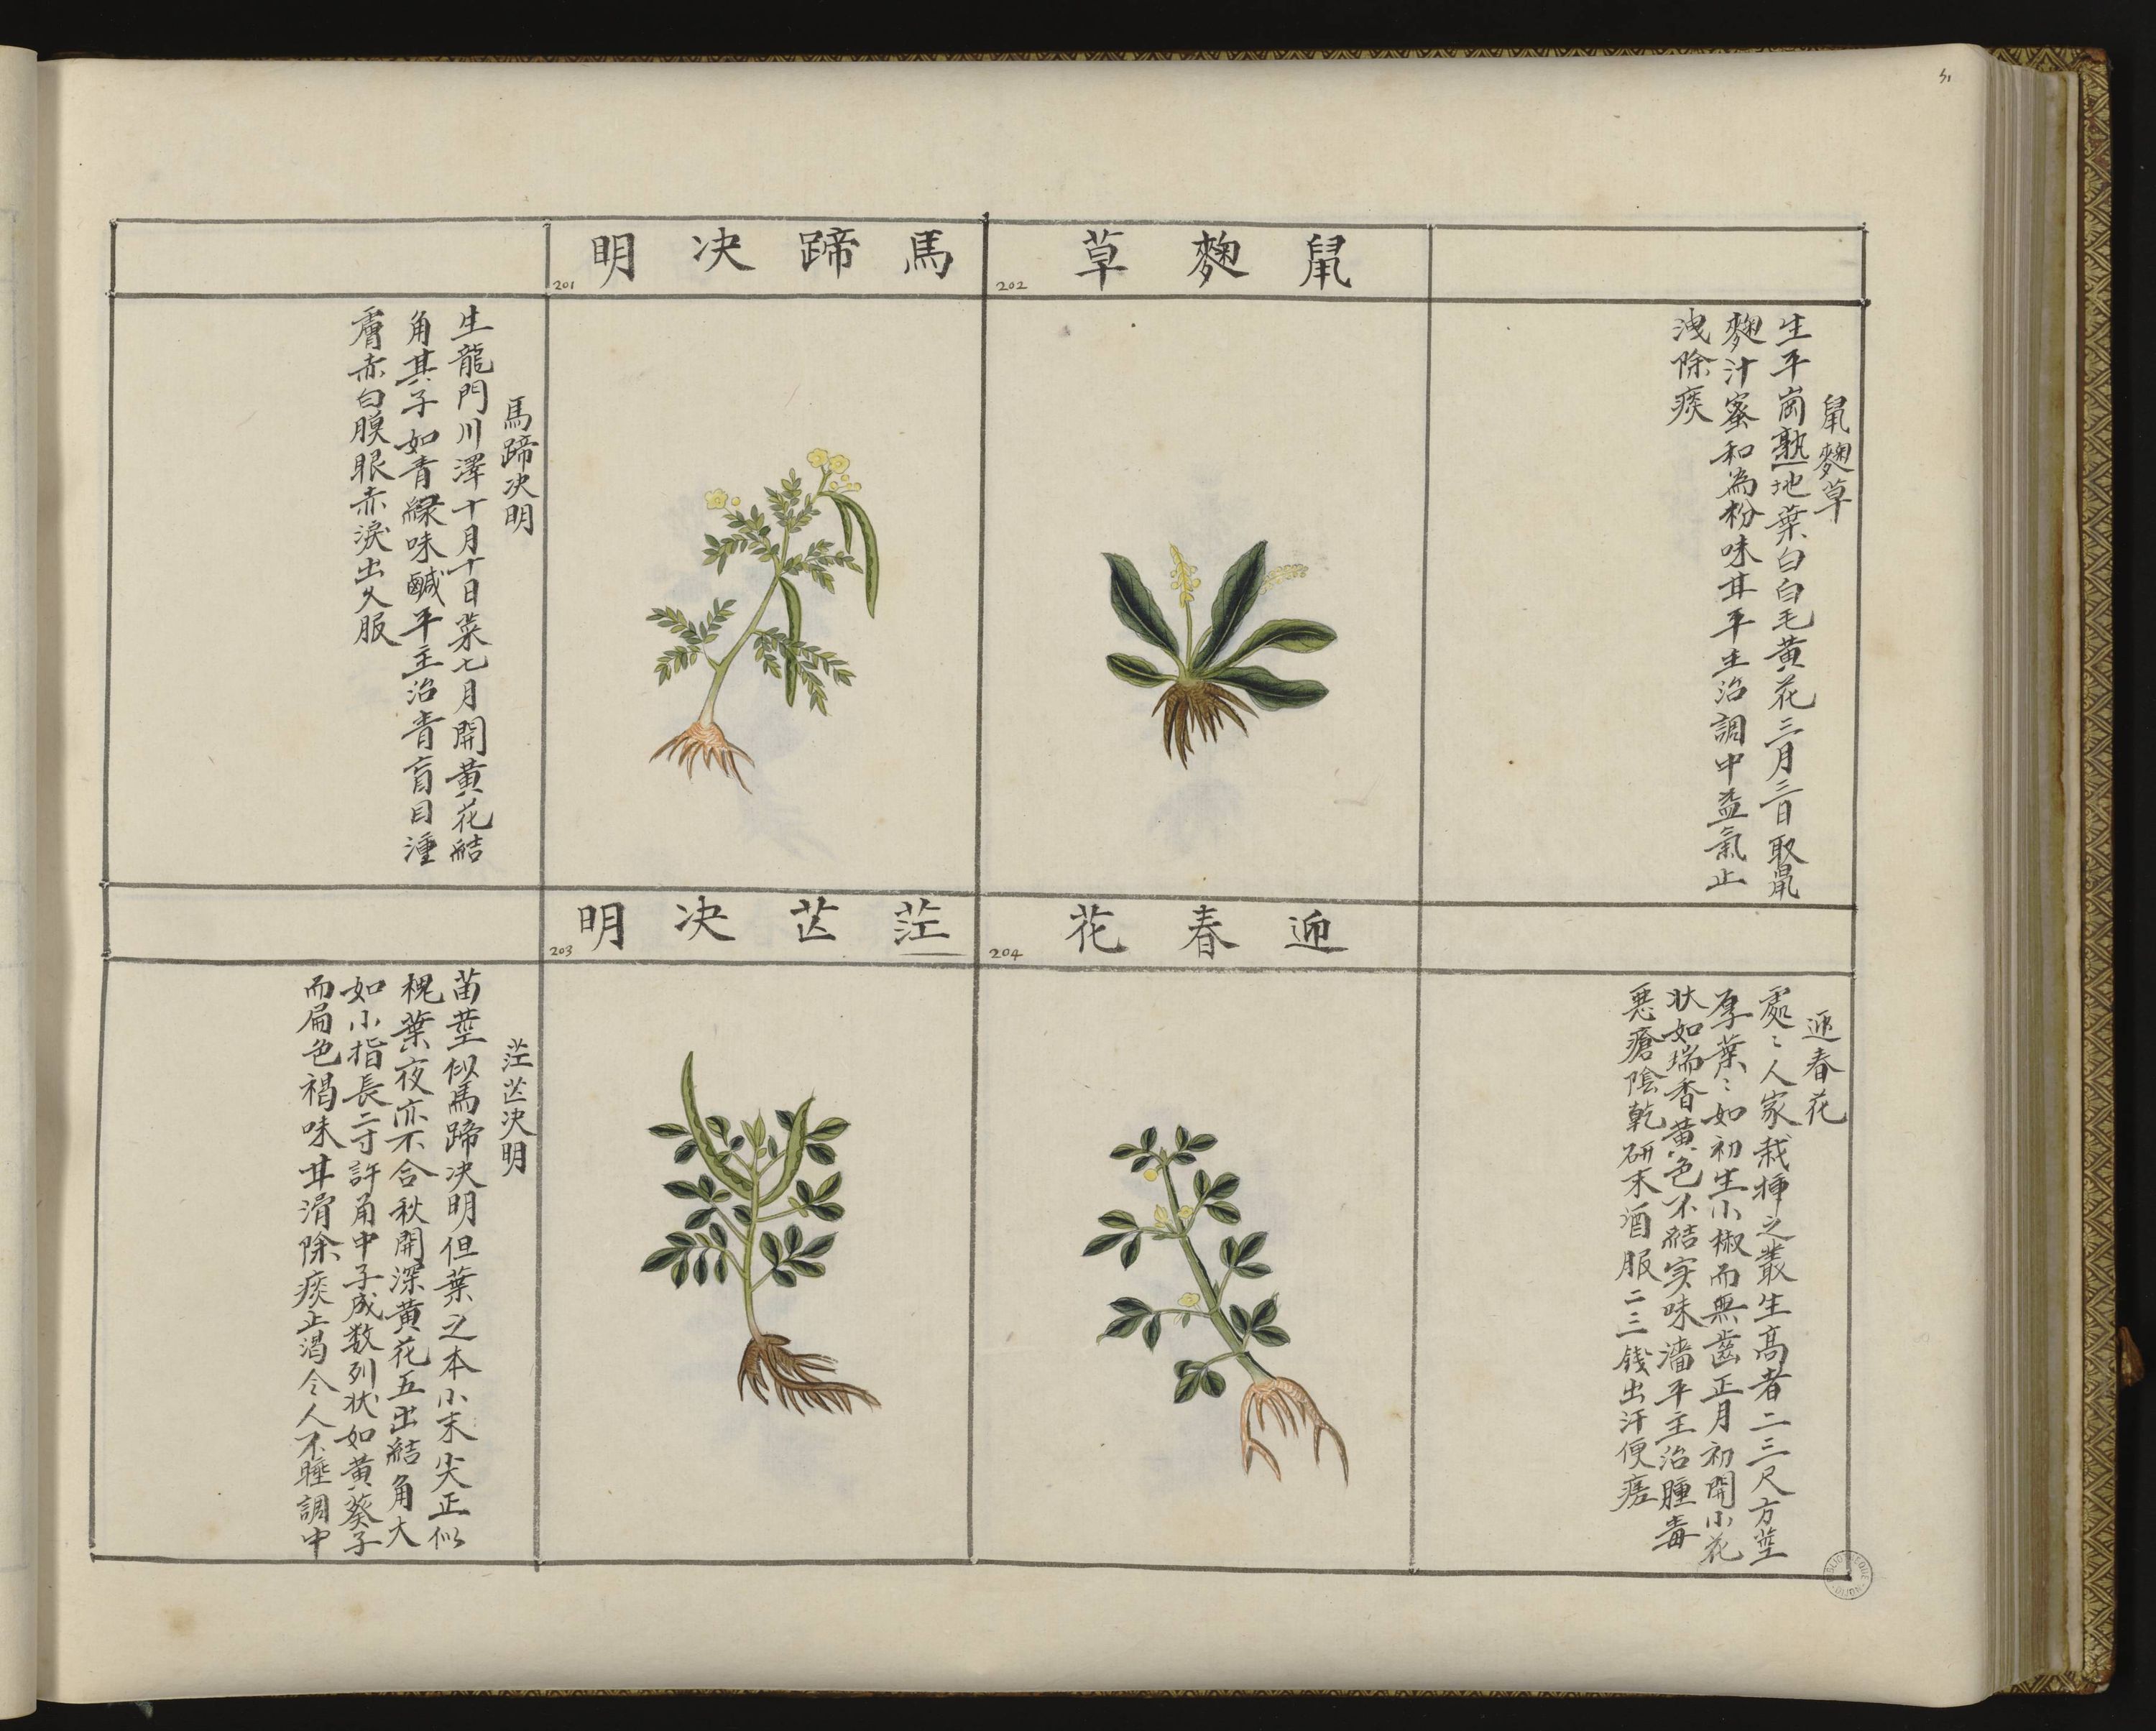 51
鼠麴草
202
鼠麴草
生平崗熟地葉白白毛黃花三月三日取鼠
麴汁蜜和為粉味甘平主治調中益氣止
洩除痰
馬蹄决明
201
馬蹄决明
生龍門川澤十月十日菜七月開黃花結
角其子如青綠味鹹平主治青盲目瀶
膚赤白膜眼赤淚出久服
迎春花
204
迎春花
處〻人家栽插之叢生高者二三尺方莖
厚葉〻如初生小椒而無齒正月初開小花
狀如瑞香黃色不結实味濇平主治腫毒
惡瘡陰乾研末酒服二三錢出汗便瘥
茳芒决明
203
茳芒决明
苗莖似馬蹄决明但葉之本小末尖正似
槐葉夜亦不合秋開深黃花五出結角大
如小指長二寸許角中子成数列狀如黃葵子
而扁色褐味甘滑除痰止渴令人不睡調中